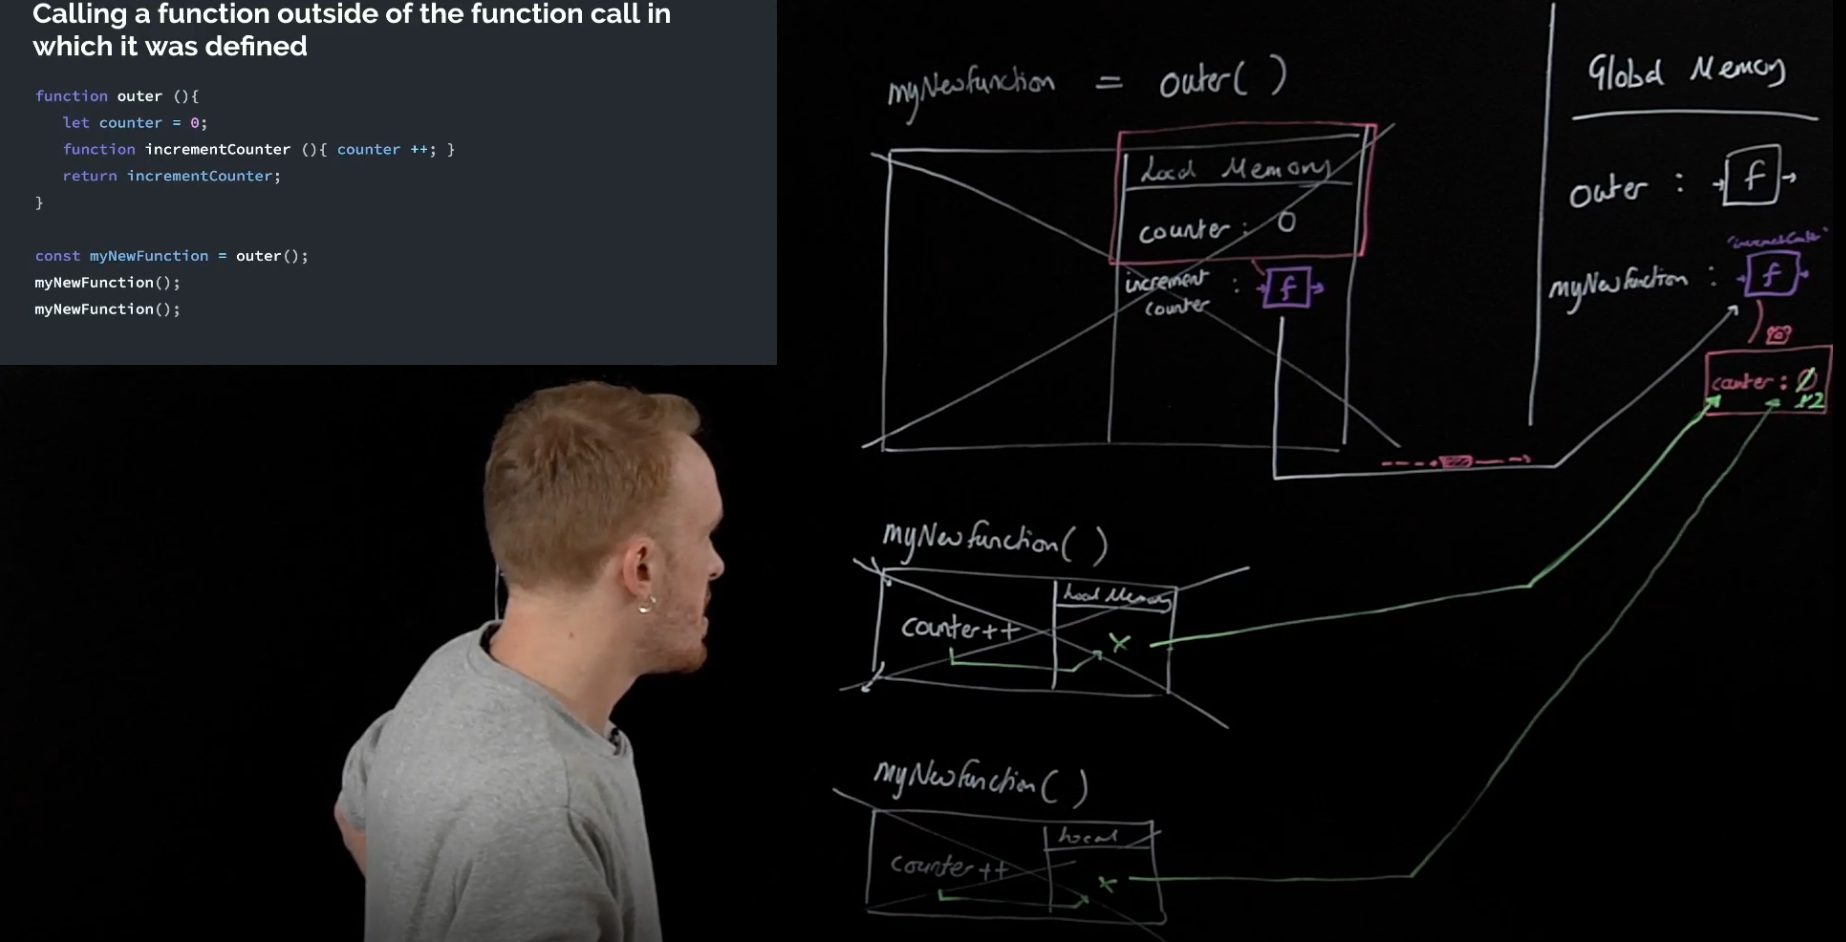 Calling a function outside of the function call in
which it was defined
function outer (){
let counter = 0;
function incrementCounter (){ counter ++; }
return incrementCounter;
}
const myNewFunction = outer();
myNewFunction();
myNewFunction();
myNewFunction = outer( )
Local Memory
counter : 0
increment : f
counter
Global Memory
outer : f
"incrementCounter"
myNewFunction : f
counter : 0
1 2
myNewFunction( )
Local Memory
counter++
myNewFunction( )
Local
counter++